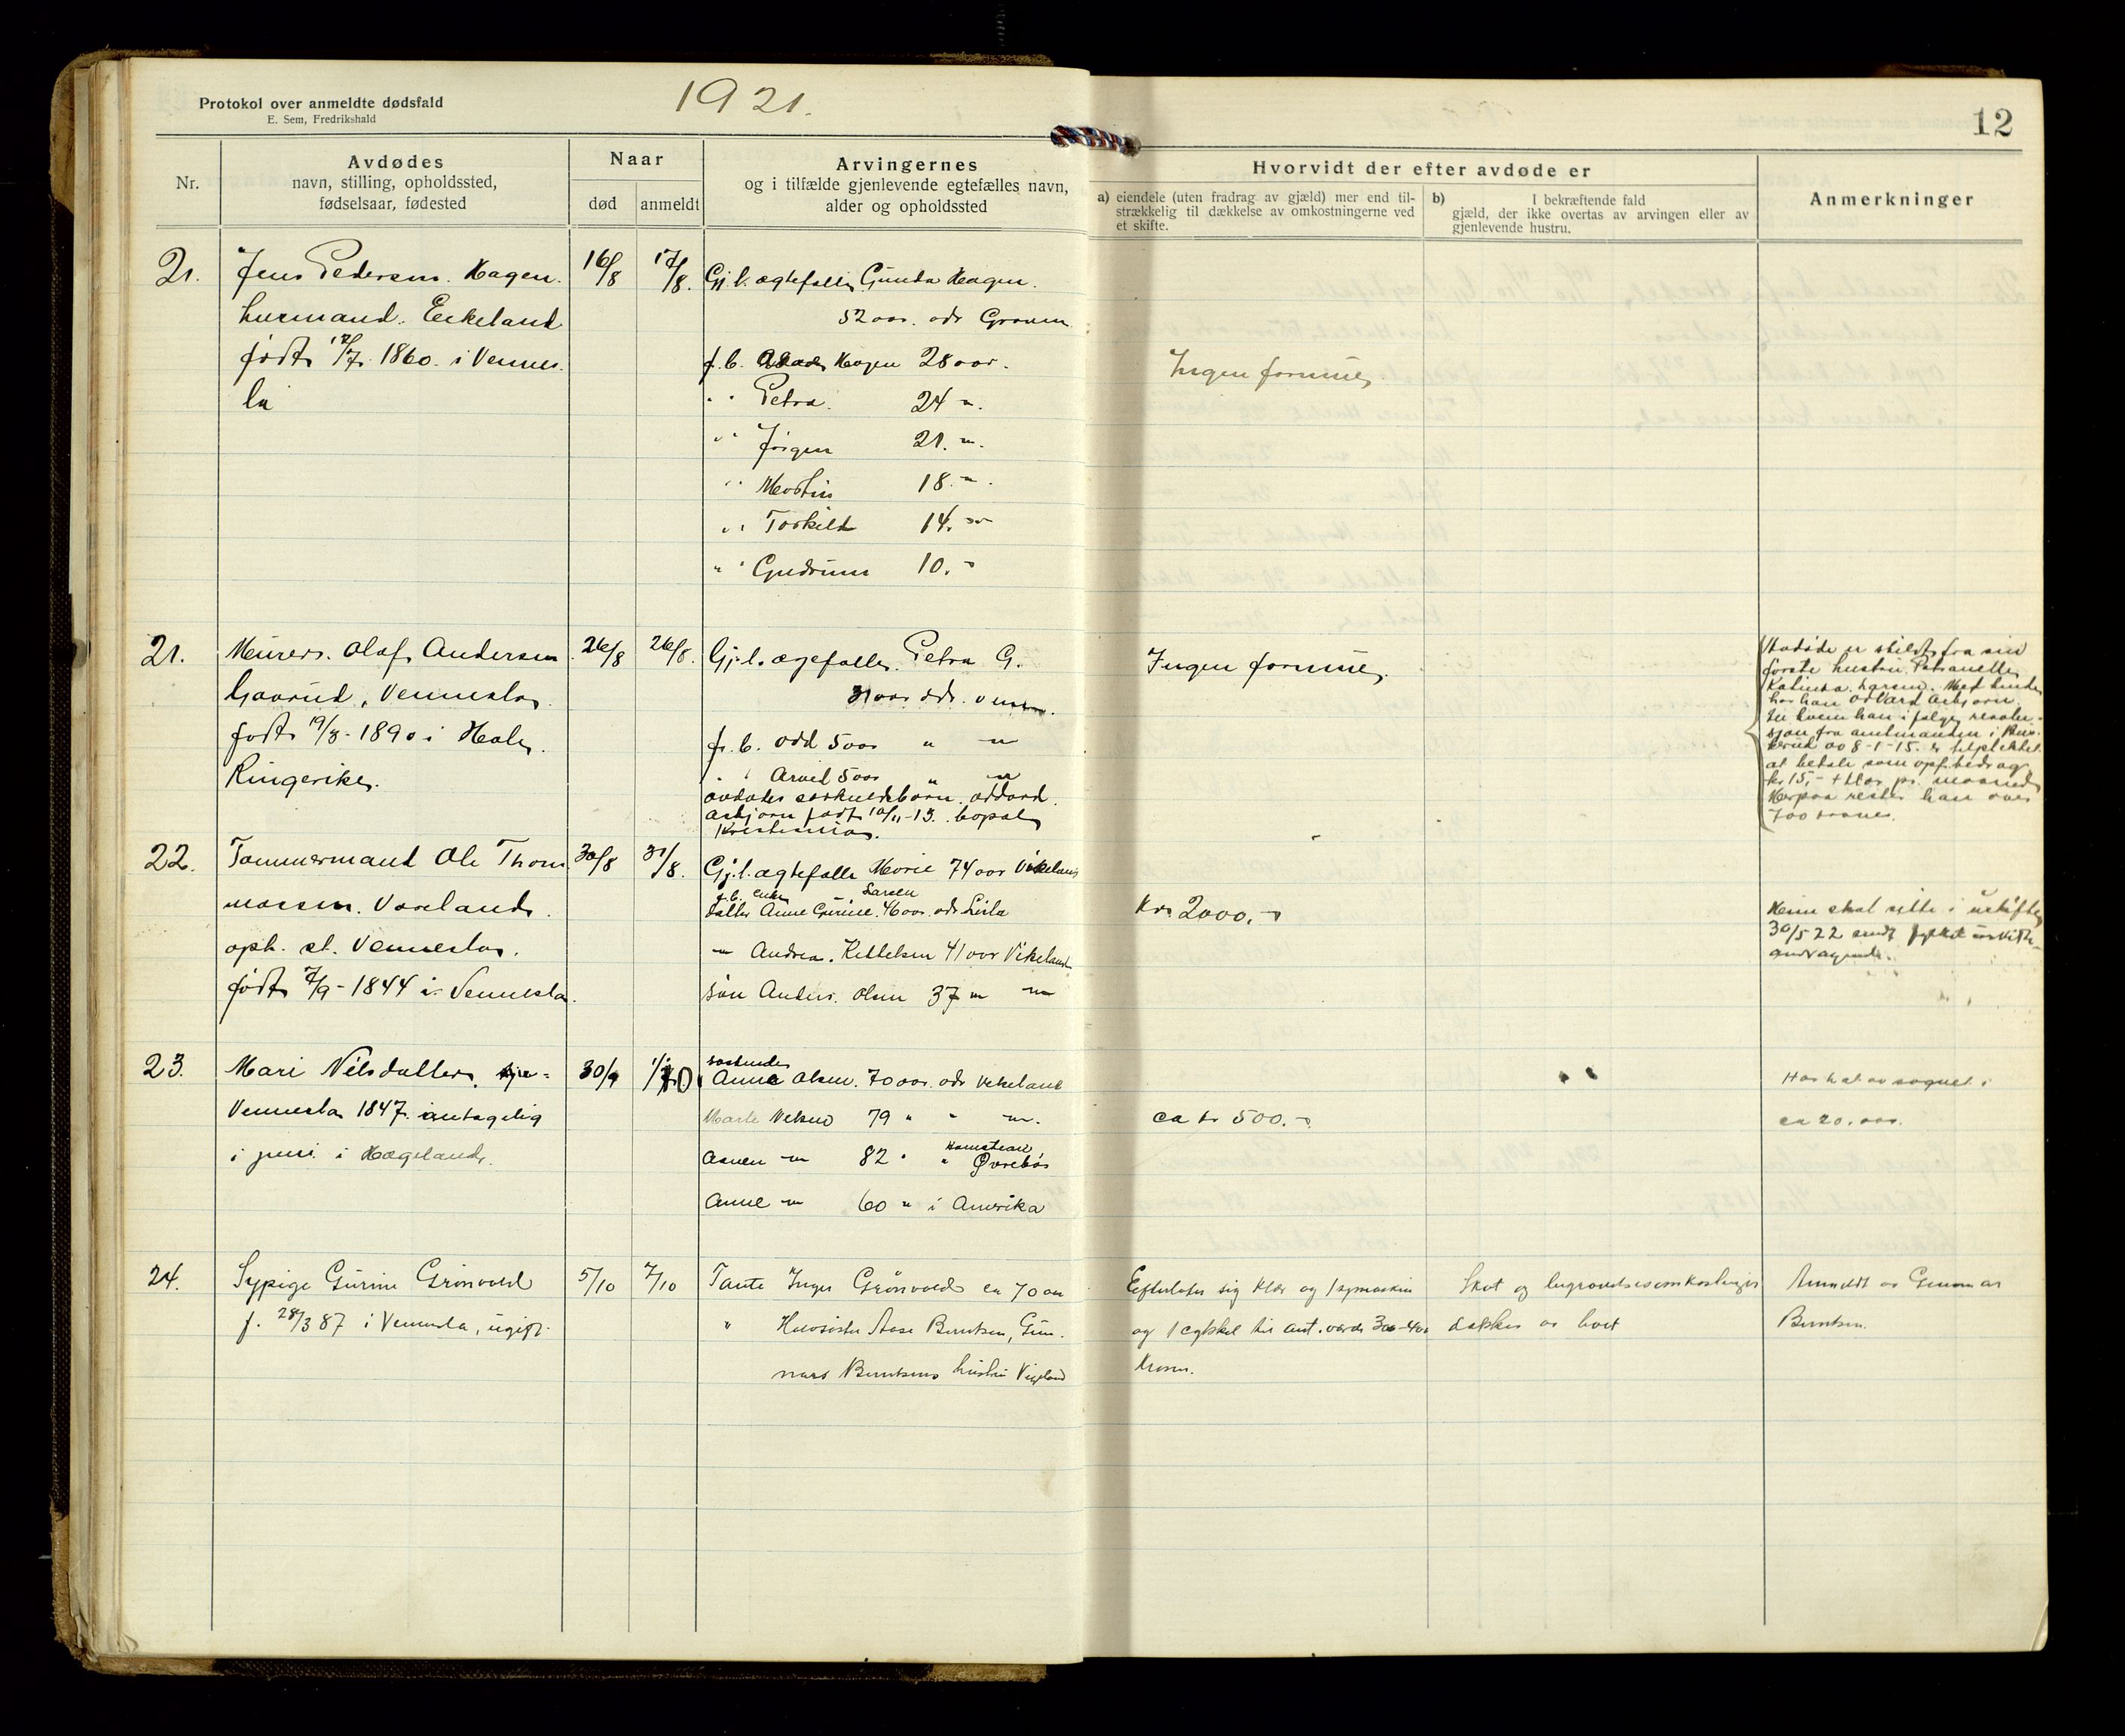 1921.
12
Protokol over anmeldte dødsfald
E. Sem, Fredrikshald
Nr.
Avdødes
navn, stilling, opholdssted,
fødselsaar, fødested
Naar
død
anmeldt
Arvingernes
og i tilfælde gjenlevende egtefælles navn,
alder og opholdssted
Hvorvidt der efter avdøde er
a) eiendele (uten fradrag av gjæld) mer end til-
strækkelig til dækkelse av omkostningerne ved
et skifte.
b) I bekræftende fald
gjæld, der ikke overtas av arvingen eller av
gjenlevende hustru.
Anmerkninger
21.
Jens Pedersen Hagen.
husmand. Eikeland
født 17/7. 1860. i Vennes
la
16/8
17/8.
Gj. l. ægtefælle Gunda Hagen.
52 aar. adr Graven
f. b. Hagen 28 aar.
" Petra. 24 "
" Jörgen 21. "
" Martin 18. "
" Torkild 14. "
" Gudrun 10. "
Ingen formue
21.
Murer. Olaf Andersen
Gaarud, Vennesla
født 19/8 - 1890 i Hole
Ringerike.
26/8
26/8.
Gj. l. ægefælle. Petra G.
31 aar adr. Venn.
f. b. Odd 5 aar " "
" Arvid 5 aar " "
avdødes særkuldsbarn. Oddvard
Asbjørn født 10/11-13. bopæl
Kristiania.
Ingen formue.
Avdøde er skildt fra sin
første hustru Petranelle
Katinka Larsen. Med hende
har han Oddvard Asbjørn
til hvem han i følge resolu-
sjon fra amtmanden i Bus-
kerud av 8-1-15. er tilpliktet
at betale som opf. bidrag
kr 15,- pr. maaned
Herpaa rester han over
700 kroner.
22.
Tømmermand Ole Thom
massen. Vaareland
oph. st. Vennesla.
født 7/9 - 1844 i Vennesla.
30/8
31/8.
Gj. l. ægtefælle Marie 74 aar Vikeland
f. b. enke Larsen
datter Anne Gurine. 46 aar. adr
" Andrea. Kittelsen 41 aar Vikeland
søn Anders. Olsen 37 " "
Kr. 2000.-
Hun skal sitte i uskifte
30/5 22 sendt uskifte-
andragende.
23.
Mari Nilsdatter.
Vennesla 1847. antagelig
i juni i Hægeland.
30/9
1/10
søskende
Anne Olsen. 70 aar. adr Vikeland
Marte Nilsen 79 " " "
Asmen " 82 " " Øvrebø
Anne " 60 " i Amerika
ca kr 500.-
Har hat av sognet i
ca 20. aar.
24.
Sypige Gurine Grönvold
f. 28/3 87 i Vennesla, ugift.
5/10
7/10
Tante Inger Grönvold ca 70 aar
" Halvsøster Aase Berntsen, Gun-
nars Berntsens hustru Vigeland
Efterlater sig klær og 1 symaskin
og 1 cykkel til ant. værdi 300-400
Kroner.
Skat og begravelsesomkostninger
dækkes av boet
Anmeldt av Gunnar
Berntsen.